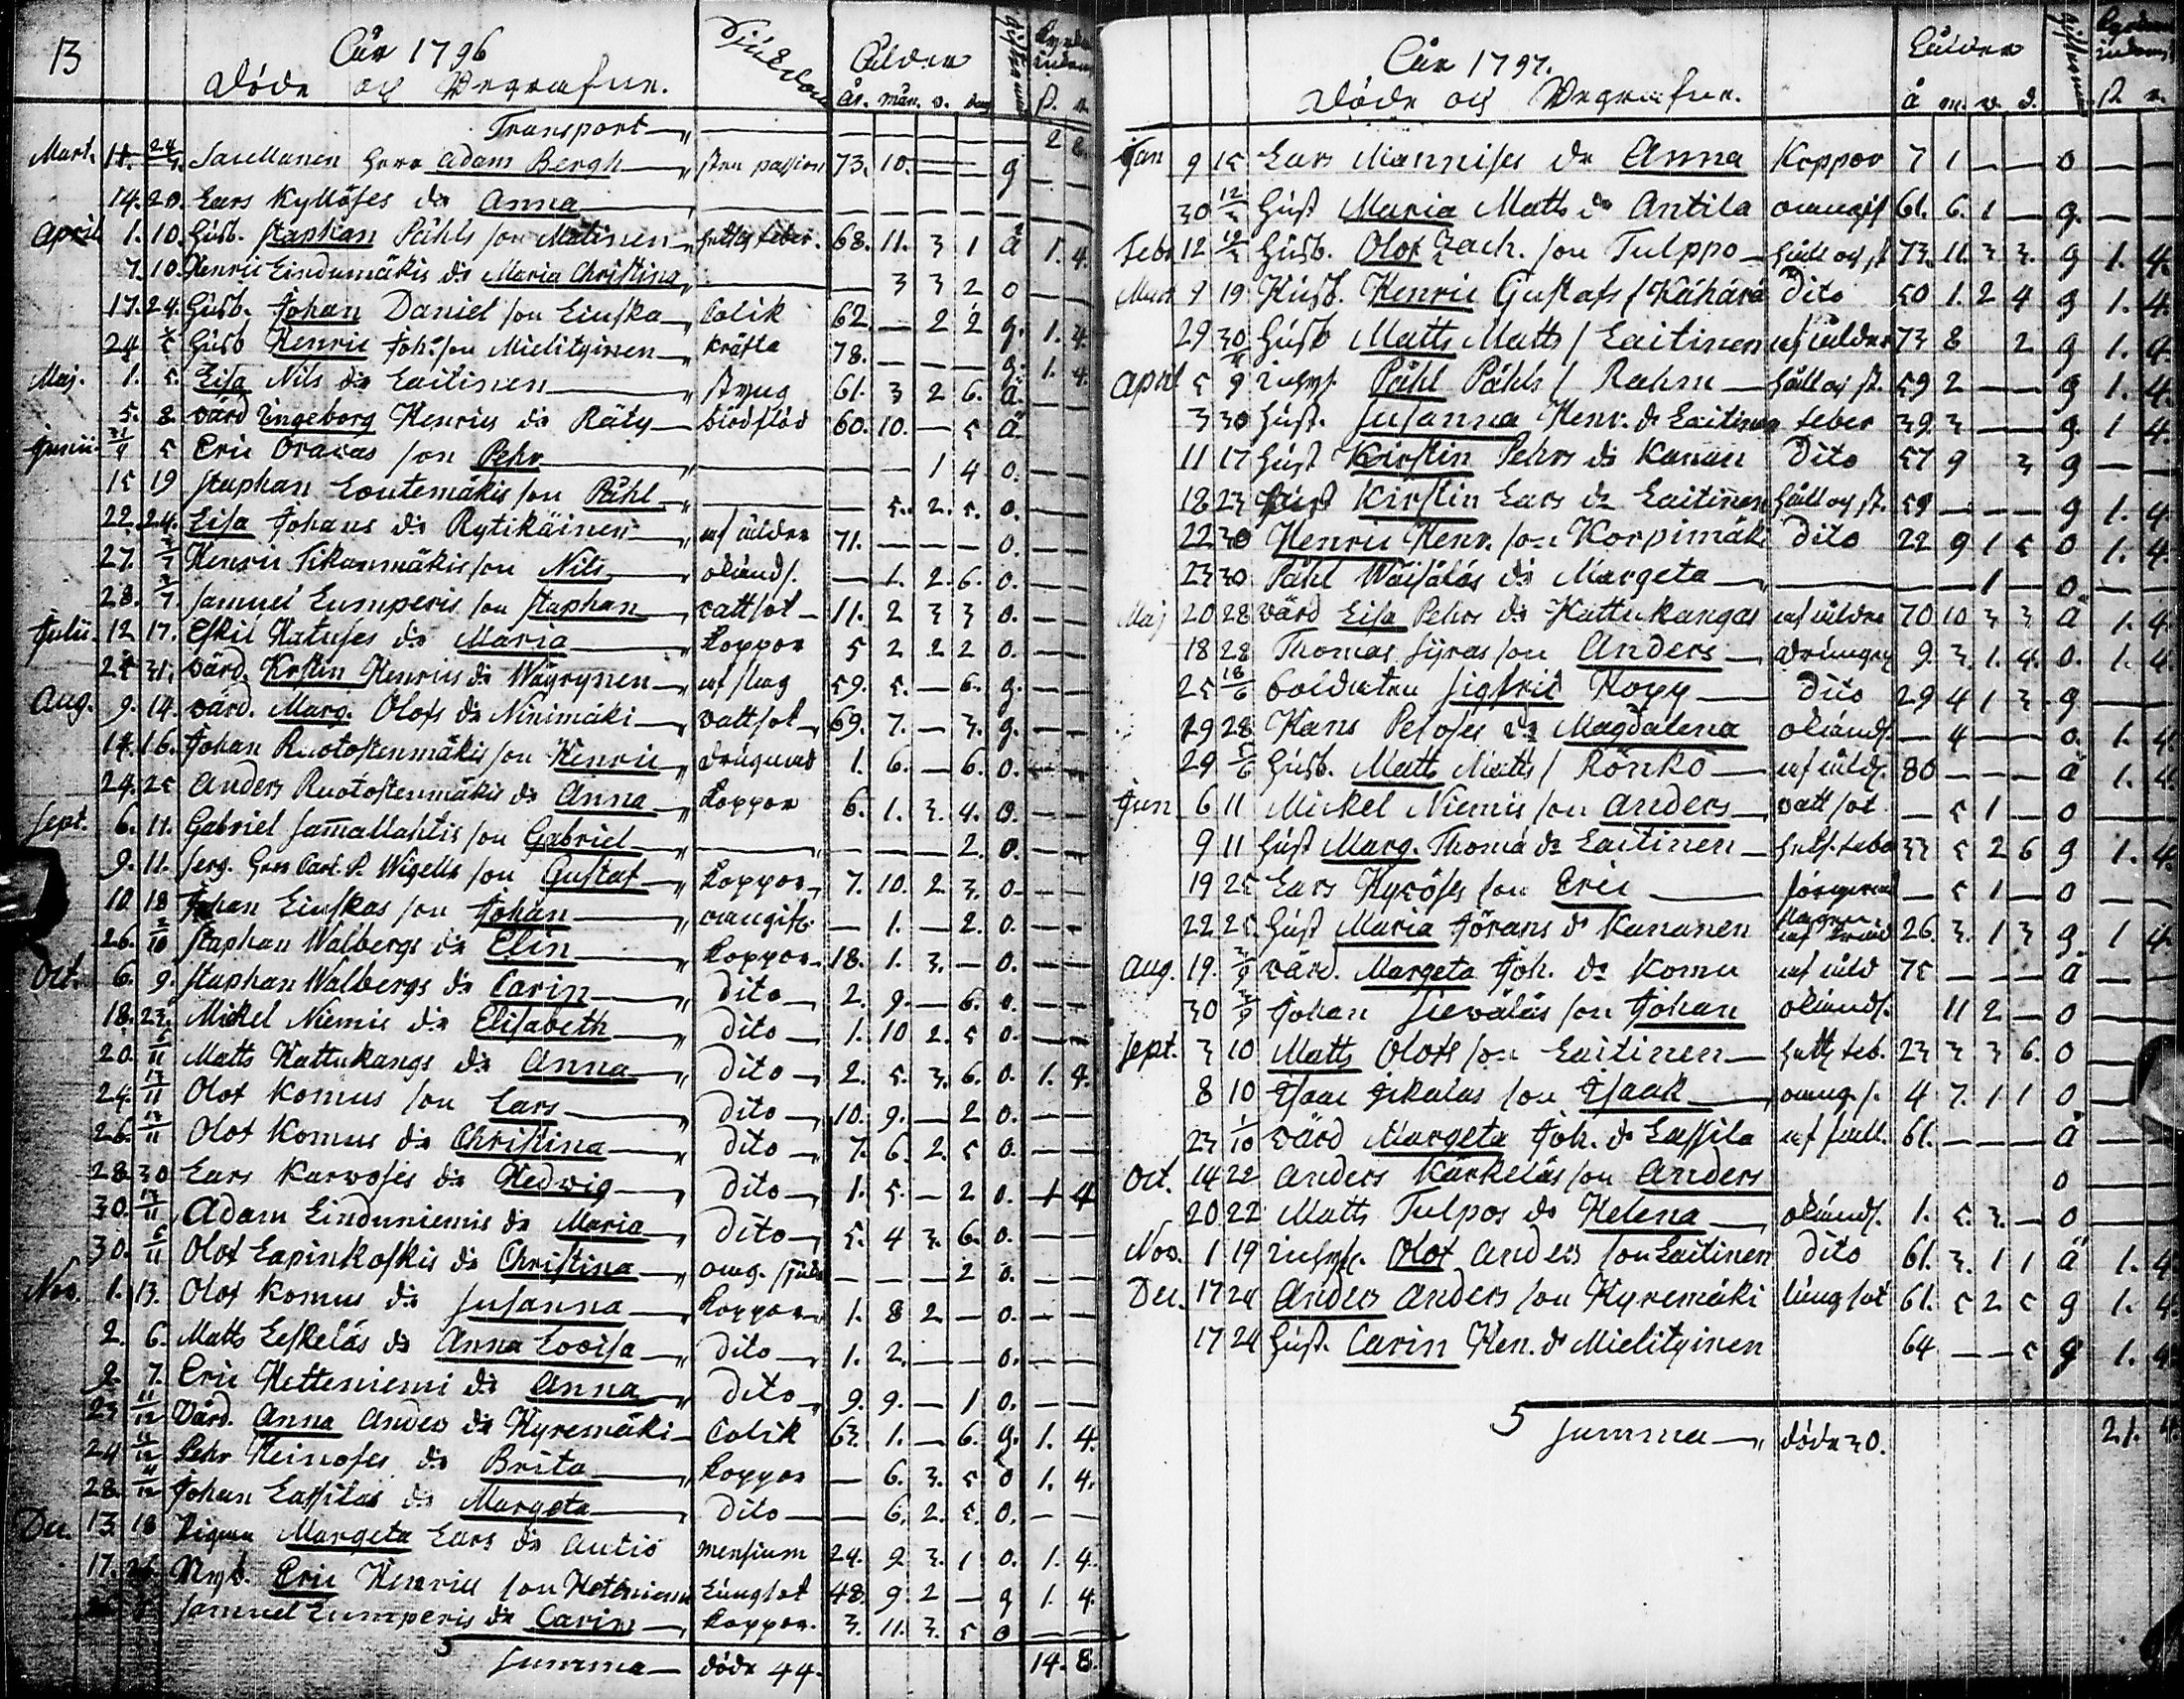 13
Åår 1796
Döde och Begrafne.
Siukdom
Åålder
år. mån. v. dag
Transport
Mart. 11. Saellanen Herr Adam Bergh sten passion 73. 10. g
14. 20. Lars Kyllöses dr Anna
April 1. 10. Husb. Staphan Påhls son Matinen hettsig feber. 68. 11. 3 1 ä 1. 4.
7. 10. Henric Lindumäkis dr Maria Christina 3 3 2 o
17. 24. Husb. Johan Daniel son Leuska Colik 62 2 2 g. 1. 4.
24 Husb Henric Joh. son Mielityinen kräfta 78. g. 1. 4.
Maj. 1. 5. Lisa Nils dr Laitinen styng 61. 3 2 6. ä.
5. 8. värd Ingeborg Henrics dr Räty blodflöd 60. 10. 5 ä
Junii 5 Eric Oravas son Pehr 1 4 o.
15 19 Staphan Loutemäkis son Påhl 5. 2. 5. o.
22. 24. Lisa Johans dr Rytikäinen af ålder 71. o.
27. Henric Tikanmäkis son Nils okänds. 1. 2. 6. o.
28. Samuel Lumperis son Staphan vattsot 11. 2 3 3 o.
Julii 12 17. Eskil Hatuses dr Maria koppor 5 2 2 2 o.
25 31. värd. Kristin Henrics dr Wäyrynen af slag 59. 5. 6. g.
Aug. 9. 14. värd. Marg. Olofs dr Ninimäki vattsot 69. 7. 3. g.
14. 16. Johan Ruotostenmäkis son Henric 1. 6. 6. o.
24. 25 Anders Ruotostenmäkis dr Anna koppor 6. 1. 3. 4. o.
Sept. 6. 11. Gabriel Jamallahtis son Gabriel 2. o.
9. 11. Serg. Herr Carl P. Wigells son Gustaf koppor 7. 10. 2 3. o
10 18 Johan Leuskas son Johan 1. 2. o.
26. 2/10 Staphan Walbergs dr Elin koppor 18. 1. 3. o.
Oct. 6. 9. Staphan Walbergs dr Carin dito 2. 9. 6. o.
18. 23. Mickel Niemis dr Elisabeth dito 1. 10 2. 5 o.
20. Matts Kattukangs dr Anna dito 2. 5. 3. 6. o. 1. 4.
24. 13/11 Olof Komus son Lars dito 10. 9. 2 o.
26. 13/11 Olof Komus dr Christina dito 7. 6. 2. 5 o.
28. 30 Lars Karvoses dr Hedvig dito 1. 5. 2 o. 1 4
30. 13/11 Adam Linduniemis dr Maria dito 5. 4 3. 6. o.
30. 6/11 Olof Lapinkoskis dr Christina 2 o.
Nov. 1. 13. Olof Komus dr Susanna koppor 1. 8 2 o.
2. 6. Matts Leskeläs dr Anna Lovisa dito 1. 2. o.
2. 7. Eric Hetteniemi dr Anna dito 9. 9. 1 o.
23 11/12 Värd. Anna Anders dr Kyremäki Colik 63. 1. 6. g. 1. 4.
24 11/12 Pehr Heinoses dr Brita koppor 6. 3. 5 o 1. 4.
28. 4/12 Johan Lassilas dr Margeta dito 6. 2. 5. o.
Dec. 13 18 Pigan Margeta Lars dr Autio mensium 24. 9 3. 1 o. 1. 4.
17. Nyb. Eric Henrics son Heteniemi lungsot 48. 9 2 g 1. 4.
Samuel Lumperis dr Carin koppor. 3. 11. 3. 5 o
Summa döde 44. 14. 8.
Åår 1797.
Döde och Begrafne.
Åålder
å m. v. d.
Jan 9 15 Lars Mannises dr Anna Koppor 7 1 o
30 Hust Maria Matts dr Antila 61. 6. 1 g.
Febr 12 Husb. Olof Zach. son Tulppo håll och st 73. 11. 3 3. g 1. 4.
Mars 9 19 Husb. Henric Gustafs s Kähärä dito 50 1. 2 4 g 1. 4.
29 30 Husb Matts Matts s Laitinen af ålder 73 8 2 g 1. 4.
April 5 9 inhys. Påhl Påhls s Rahm håll och st. 59 2 g 1. 4.
3 30 Hust. Susanna Henr. dr Laitinen feber 39. 3 g. 1 4.
11 17 Hust Kirstin Pehrs dr Kanan dito 57 9 3 g
18 23 Hust Kirstin Lars dr Laitinen håll och st. 59 g 1. 4.
22 30 Henric Henr. son Korpimäki dito 22 9 1 5 o 1. 4.
23 30 Påhl Wäisäläs dr Margeta 1 o
Maj 20 28 värd Lisa Pehrs dr Kattukangas af ålder 70 10 3 3 ä 1. 4
18 28 Thomas Syras son Anders 9. 3. 1. 4. o. 1. 4
25 18/6 Soldaten Sigfrid Kopp dito 29 4 1 3 g
19 28 Hans Peloses dr Magdalena okänds. 4 o. 1. 4
29 5/6 Husb. Matts Matts s Rönkö af åld. 80 ä 1. 4
Jun 6 11 Mickel Niemis son Anders vattsot 5 1 o
9 11 Hust Marg. Thoma dr Laitinen hets. feber 33 5 2 6 g 1. 4.
19 25 Lars Kyröses son Eric 5 1 o
22 25 Hust Maria Jörans dr Kananen 26. 3. 1 3 g. 1 4.
Aug. 19. 3/9 värd. Margeta Joh. dr Komu af åld 75 ä
30 3/9 Johan Sieväläs son Johan okänds. 11 2 o
Sept. 3 10 Matts Olofs son Laitinen hettsig feb. 23 3 3 6. o
8 10 Isaac Jikalas son Isaak 4 7. 1 1 o
23 1/10 värd Margeta Joh. dr Lassila 61. ä
Oct. 14 22 Anders Kärkeläs son Anders o
20 22 Matts Tulpos dr Helena okänds. 1. 5. 3. o
Nov. 1 19 inhys. Olof Anders son Laitinen dito 61. 3. 1 1 ä 1. 4
Dec. 17 24 Anders Anders son Kyremäki lungsot 61. 5 2 5 g 1. 4
17 24 Hust. Carin Hen. dr Mielityinen 64 5 g 1. 4
Summa döde 30. 21. 4